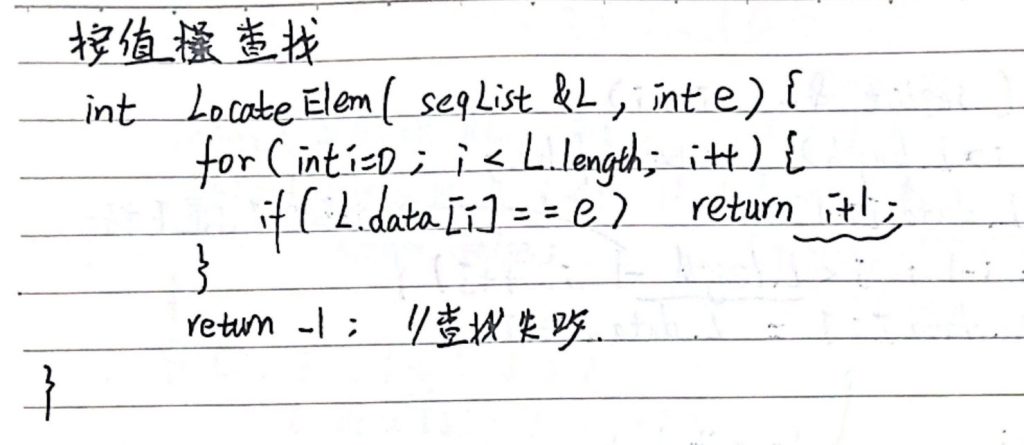 按值查找
int LocateElem( seqList &L, int e) {
for( int i=0; i < L.length; i++) {
if( L.data[i] == e) return i+1;
}
return -1; //查找失败.
}